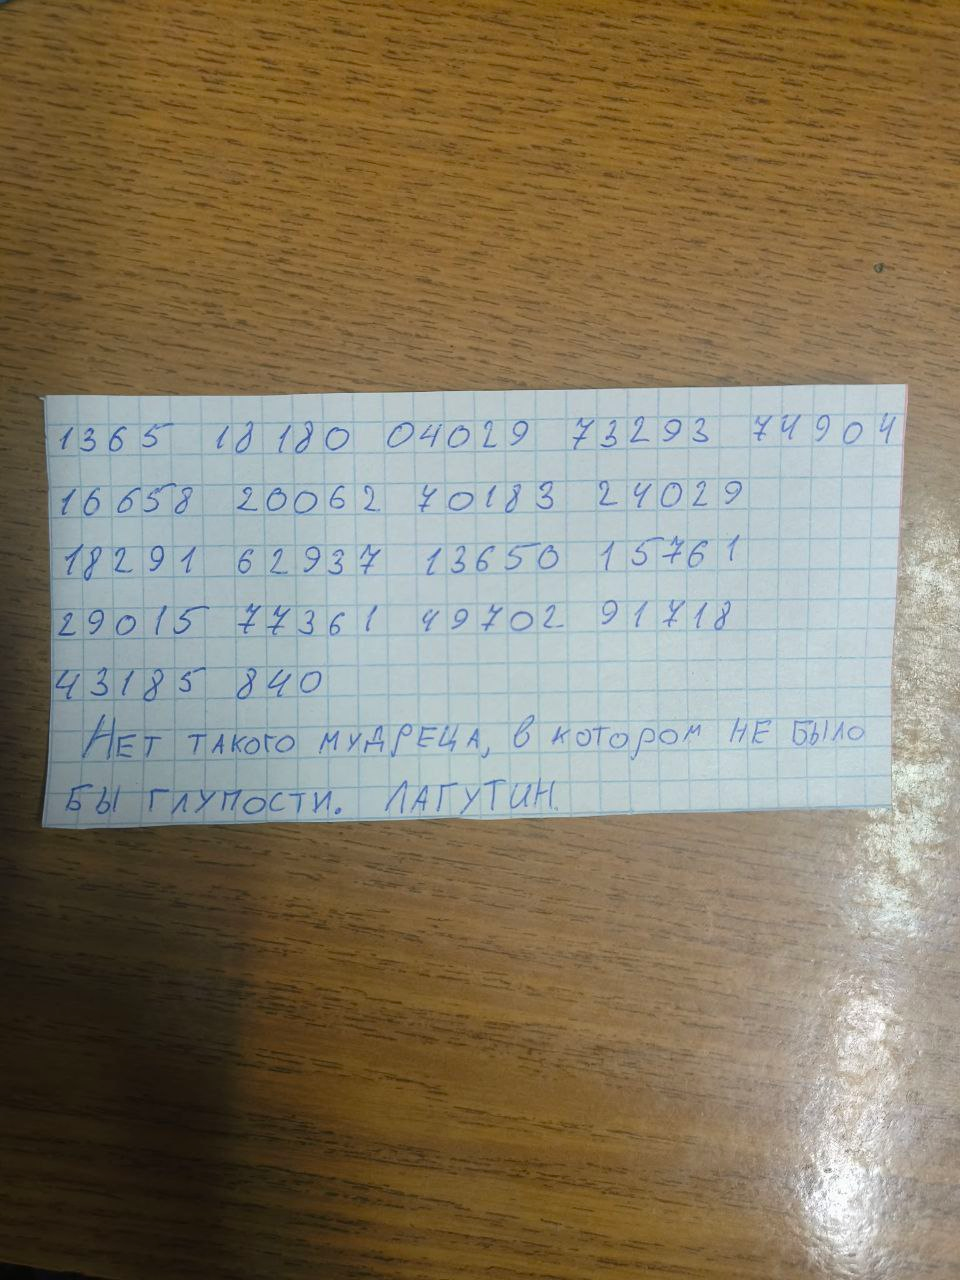 1365 18180 04029 73293 74904
16658 20062 70183 24029
18291 62937 13650 15761
29015 77361 49702 91718
43185 840
Нет такого мудреца, в котором не было
бы глупости. Лагутин.